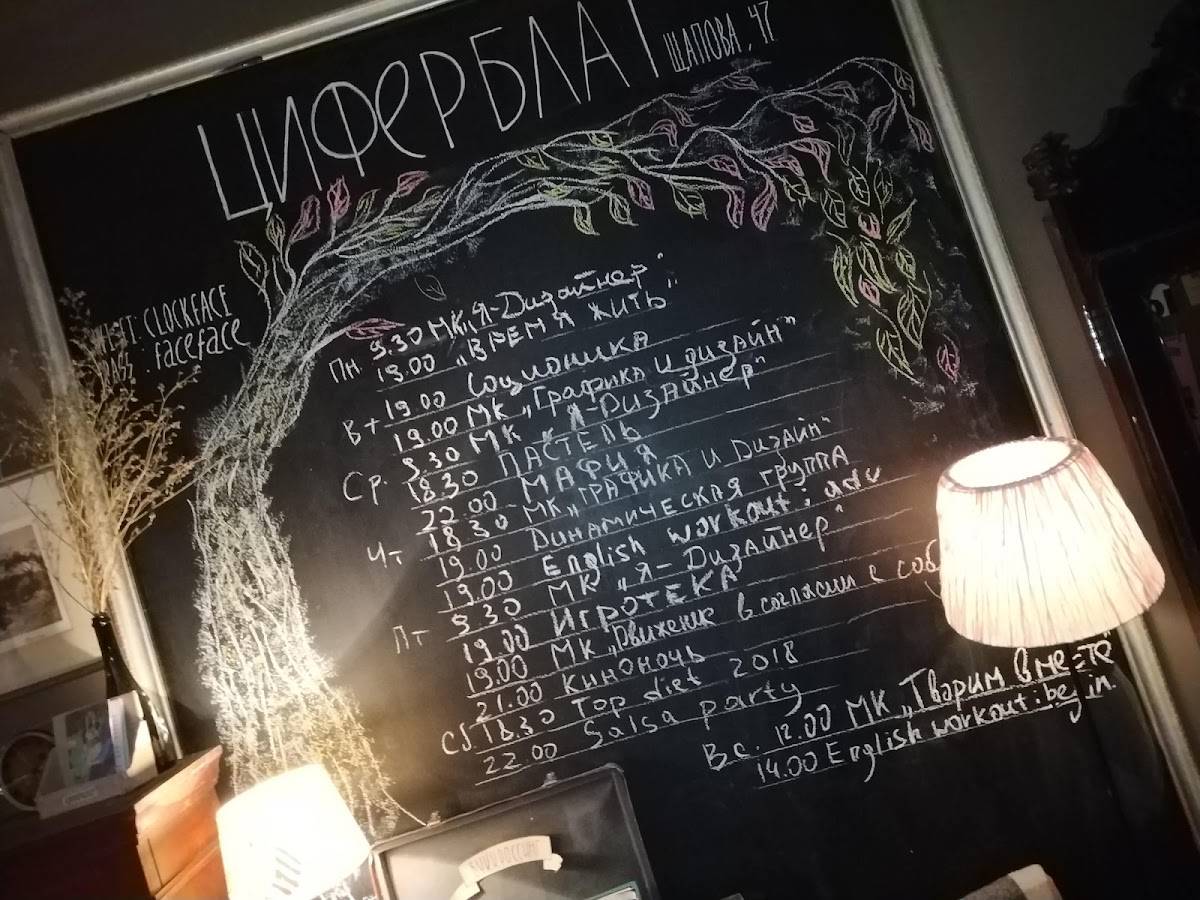 ЦИФЕРБЛАТ
ЩАПОВА, 47
CLOCKFACE
PASS: FACEFACE
Пн. 9.30 МК „Я-Дизайнер"
19.00 „ВРЕМЯ ЖИТЬ"
Вт 19.00 Соционика
19.00 МК „Графика и дизайн"
Ср. 9.30 МК „Я-Дизайнер"
18.30 ПАСТЕЛЬ
22.00 МАФИЯ
Чт 18.30 МК „ГРАФИКА и Дизайн"
19.00 Динамическая группа
19.00 English workout: adv
Пт 9.30 МК „Я-Дизайнер"
19.00 ИГРОТЕКА
19.00 МК „Движение в согласии с соб
21.00 Киноночь
Сб. 18.30 Top diet 2018
22.00 Salsa party
Вс. 12.00 МК „Творим вместе"
14.00 English workout: begin.